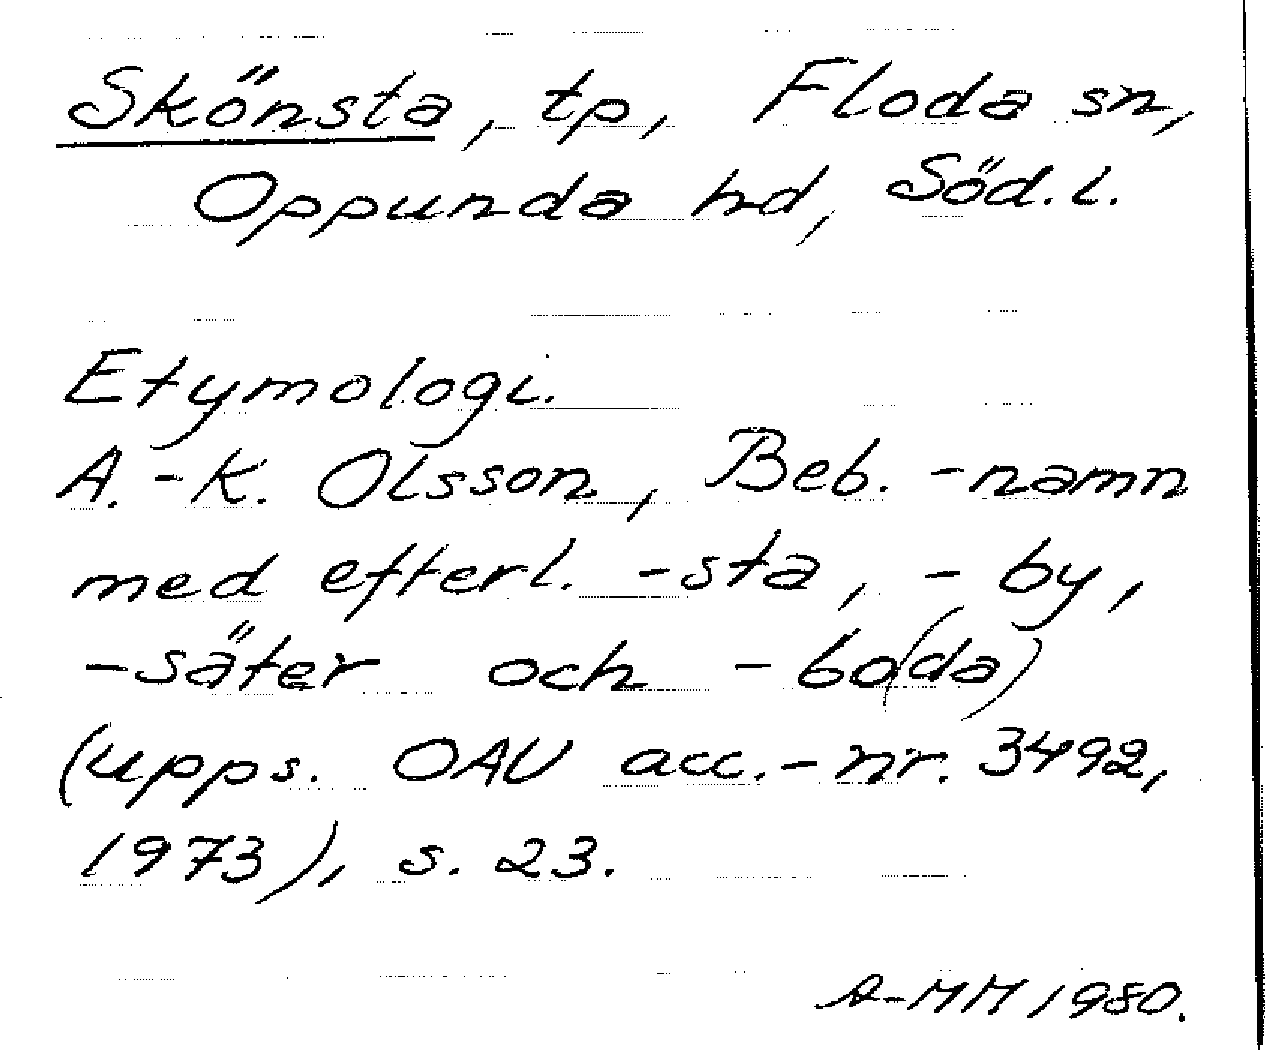 Skönsta, tp, Floda sn,
Oppunda hd, Söd. l.
Etymologi.
A.-K. Olsson, Beb. -namn
med efterl. -sta, -by,
-säter och -bo(da)
(upps. OAU acc.-nr. 3492,
1973), s. 23.
A-MM 1980.